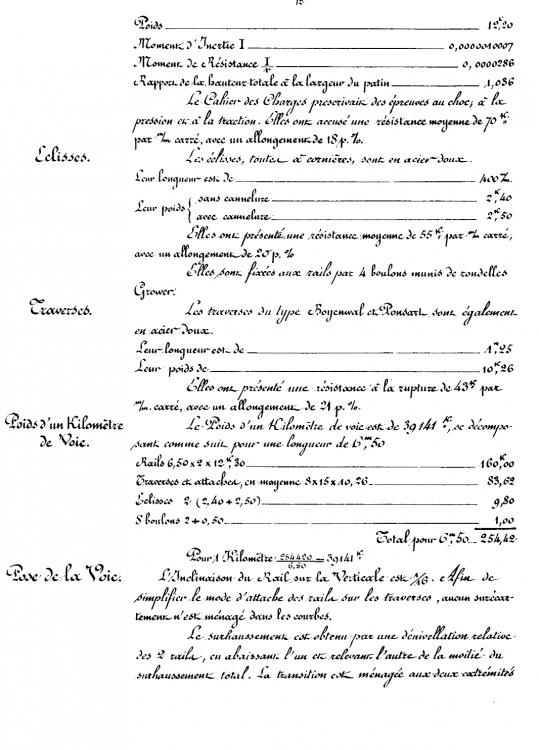 12.
Poids 12,k20
Moment d'Inertie I 0,0000010007
Moment de Résistance I/v 0,0000286
Rapport de la hauteur totale à la largeur du patin 1,036
Le Cahier des Charges prescrivait des épreuves au choc, à la
pression et à la traction. Elles ont accusé une résistance moyenne de 70 k.
par m/m carré, avec un allongement de 18 p. %.
Eclisses.
Les éclisses, toutes à cornières, sont en acier doux.
Leur longueur est de 400 m/m
Leur poids { sans cannelure 2,k40
avec cannelure 2,k50
Elles ont présenté une résistance moyenne de 55 k. par m/m carré,
avec un allongement de 20 p. %
Elles sont fixées aux rails par 4 boulons munis de rondelles
Grower.
Traverses.
Les traverses du type Boyenval et Ponsart sont également
en acier doux.
Leur longueur est de 1,m25
Leur poids de 10,k26
Elles ont présenté une résistance à la rupture de 43 k. par
m/m. carré, avec un allongement de 21 p. %.
Poids d'un Kilomètre
de Voie.
Le Poids d'un Kilomètre de voie est de 39141 k., se décompo-
sant comme suit pour une longueur de 6,m50
Rails 6,50 x 2 x 12,k30 160,k00
Traverses et attaches, en moyenne 8 x 15 x 10,26 83,62
Eclisses 2 (2,40 + 2,50) 9,80
8 boulons 2+0,50 1,00
Total pour 6,m50 254,42
Pour 1 Kilomètre 254420/6,50 = 39141 k
Pose de la Voie.
L'Inclinaison du Rail sur la Verticale est 1/16. Afin de
simplifier le mode d'attache des rails sur les traverses, aucun surécar-
tement n'est ménagé dans les courbes.
Le surhaussement est obtenu par une dénivellation relative
des 2 rails, en abaissant l'un et relevant l'autre de la moitié du
surhaussement total. La transition est ménagée aux deux extrémités